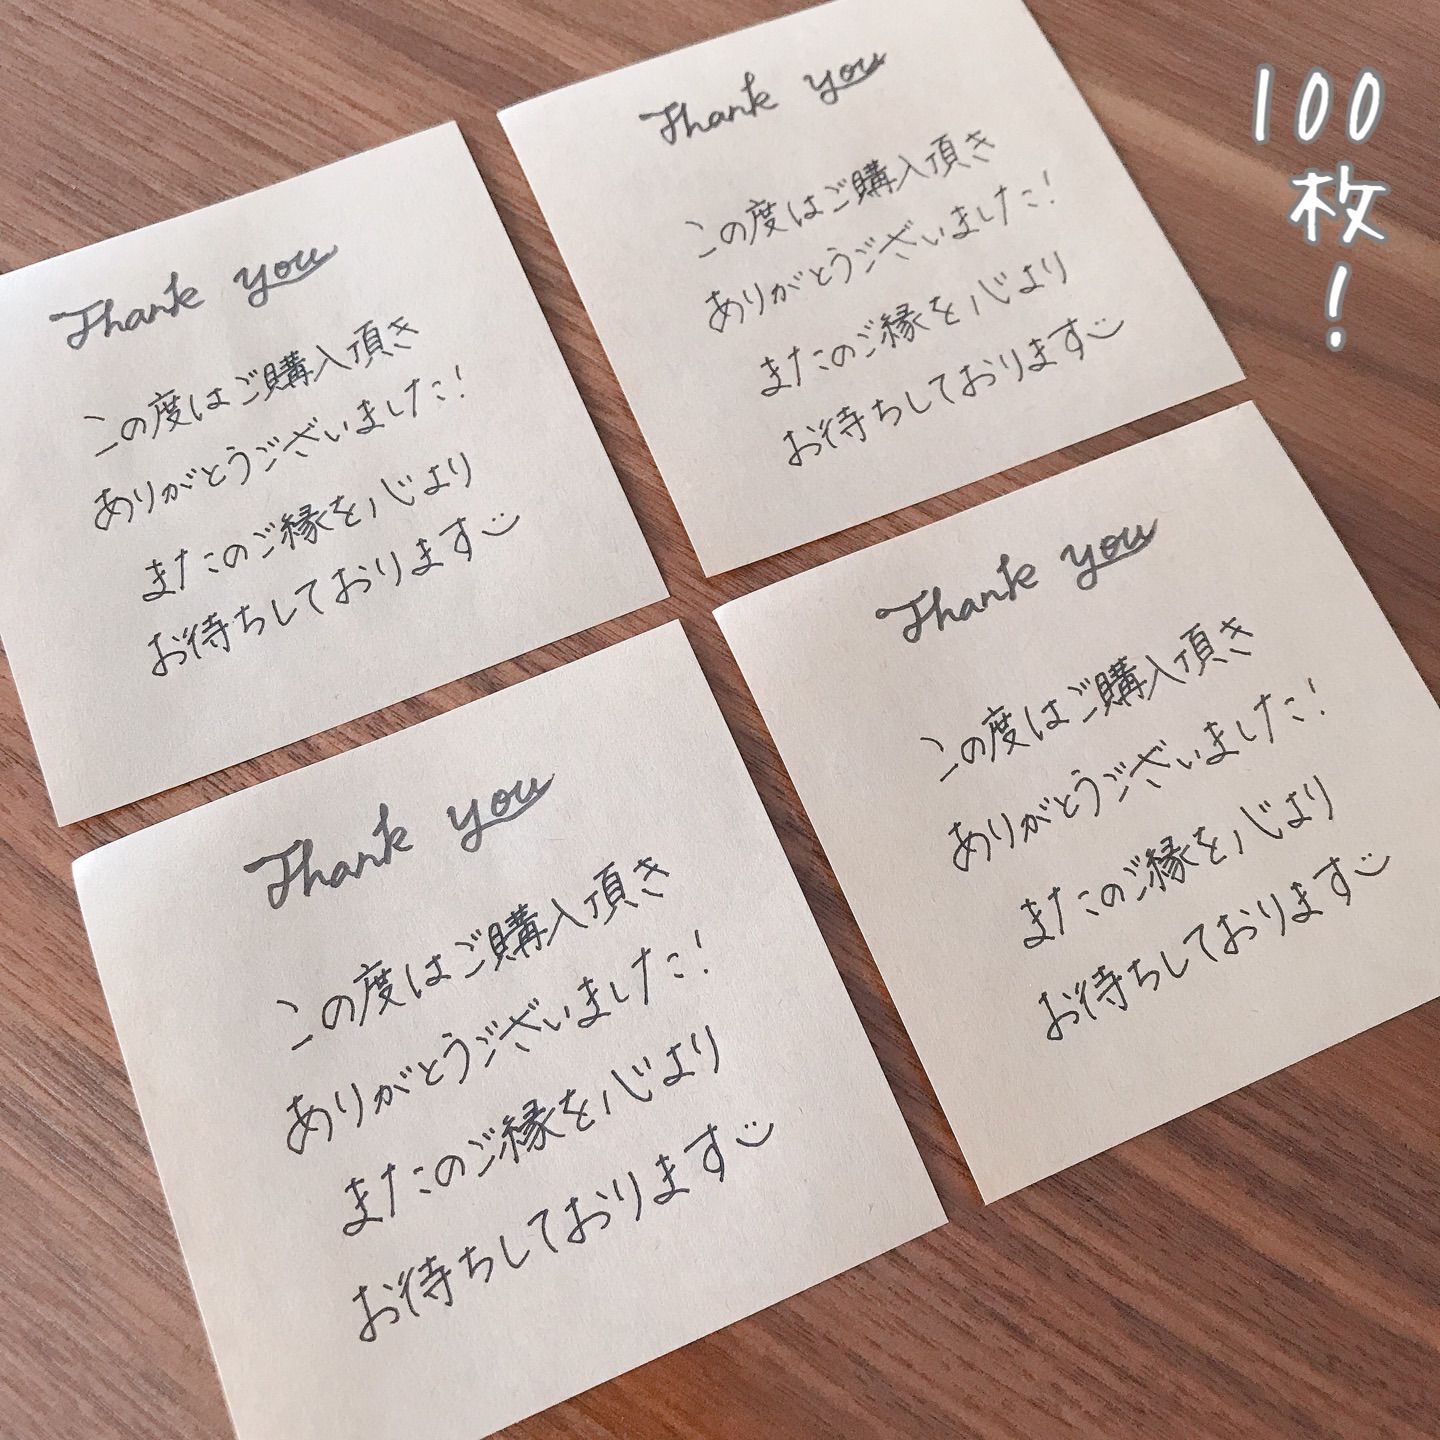 Thank you
この度はご購入頂き
ありがとうございました!
またのご縁を心より
お待ちしております
Thank you
この度はご購入頂き
ありがとうございました!
またのご縁を心より
お待ちしております
100
枚
!
Thank you
この度はご購入頂き
ありがとうございました!
またのご縁を心より
お待ちしております
Thank you
この度はご購入頂き
ありがとうございました!
またのご縁を心より
お待ちしております